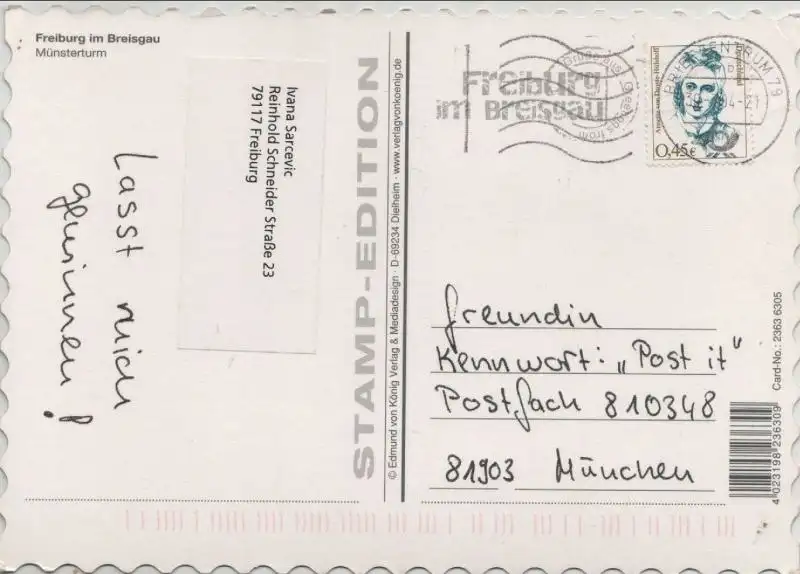 Freiburg im Breisgau
Münsterturm
Ivana Sarcevic
Reinhold Schneider Straße 23
79117 Freiburg
Lasst mich
gewinnen!
STAMP-EDITION
© Edmund von König Verlag & Mediadesign · D-69234 Dielheim · www.verlagvonkoenig.de
Freiburg
im Breisgau
Greetings from
BRIEFZENTRUM 79
Annette von Droste-Hülshoff
Deutschland
0,45€
Freundin
Kennwort: „Post it"
Postfach 810348
81903 München
Card-No.: 2363 6305
4 023198 236309